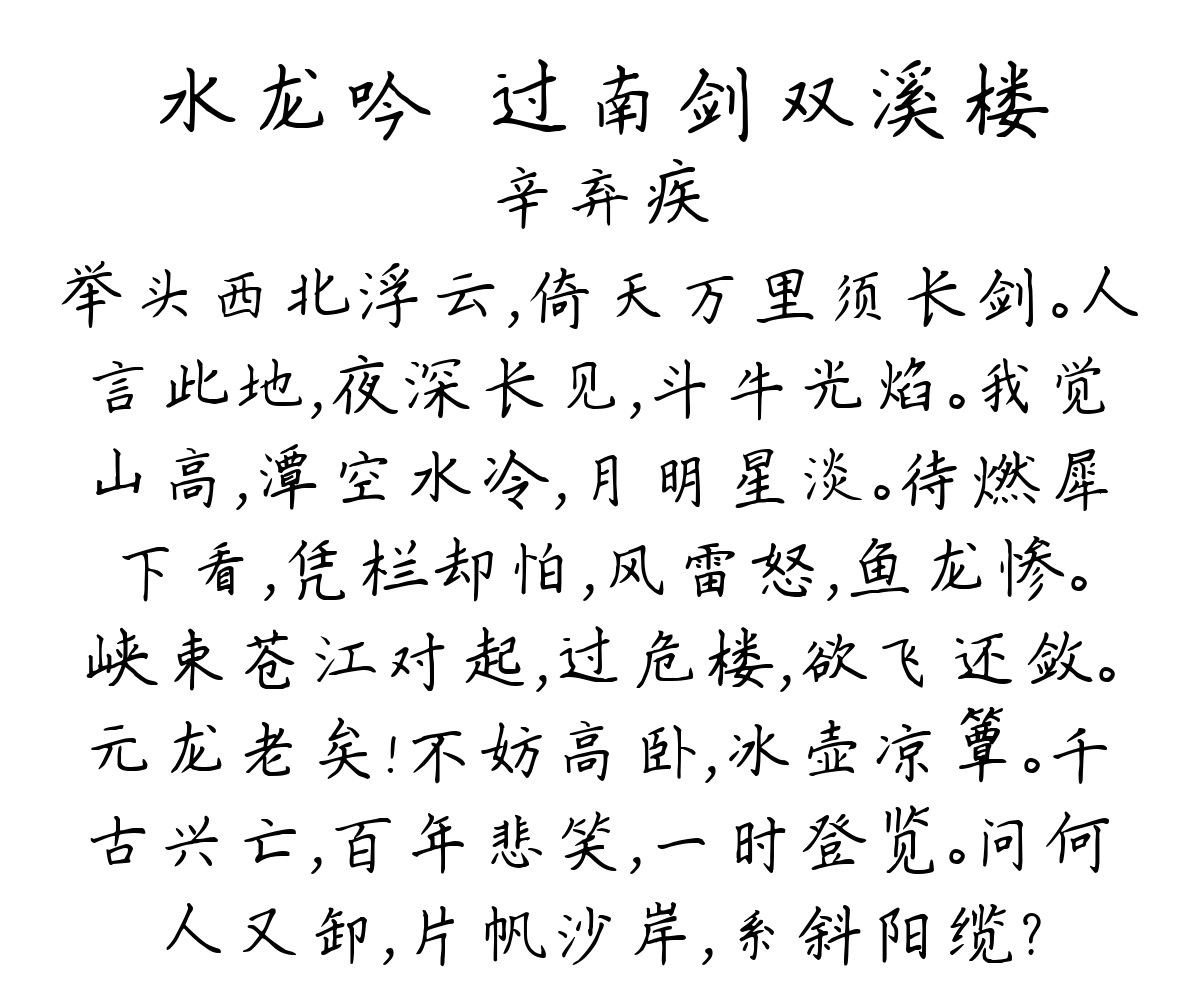 水龙吟 过南剑双溪楼
辛弃疾
举头西北浮云,倚天万里须长剑。人
言此地,夜深长见,斗牛光焰。我觉
山高,潭空水冷,月明星淡。待燃犀
下看,凭栏却怕,风雷怒,鱼龙惨。
峡束苍江对起,过危楼,欲飞还敛。
元龙老矣!不妨高卧,冰壶凉簟。千
古兴亡,百年悲笑,一时登览。问何
人又卸,片帆沙岸,系斜阳缆?